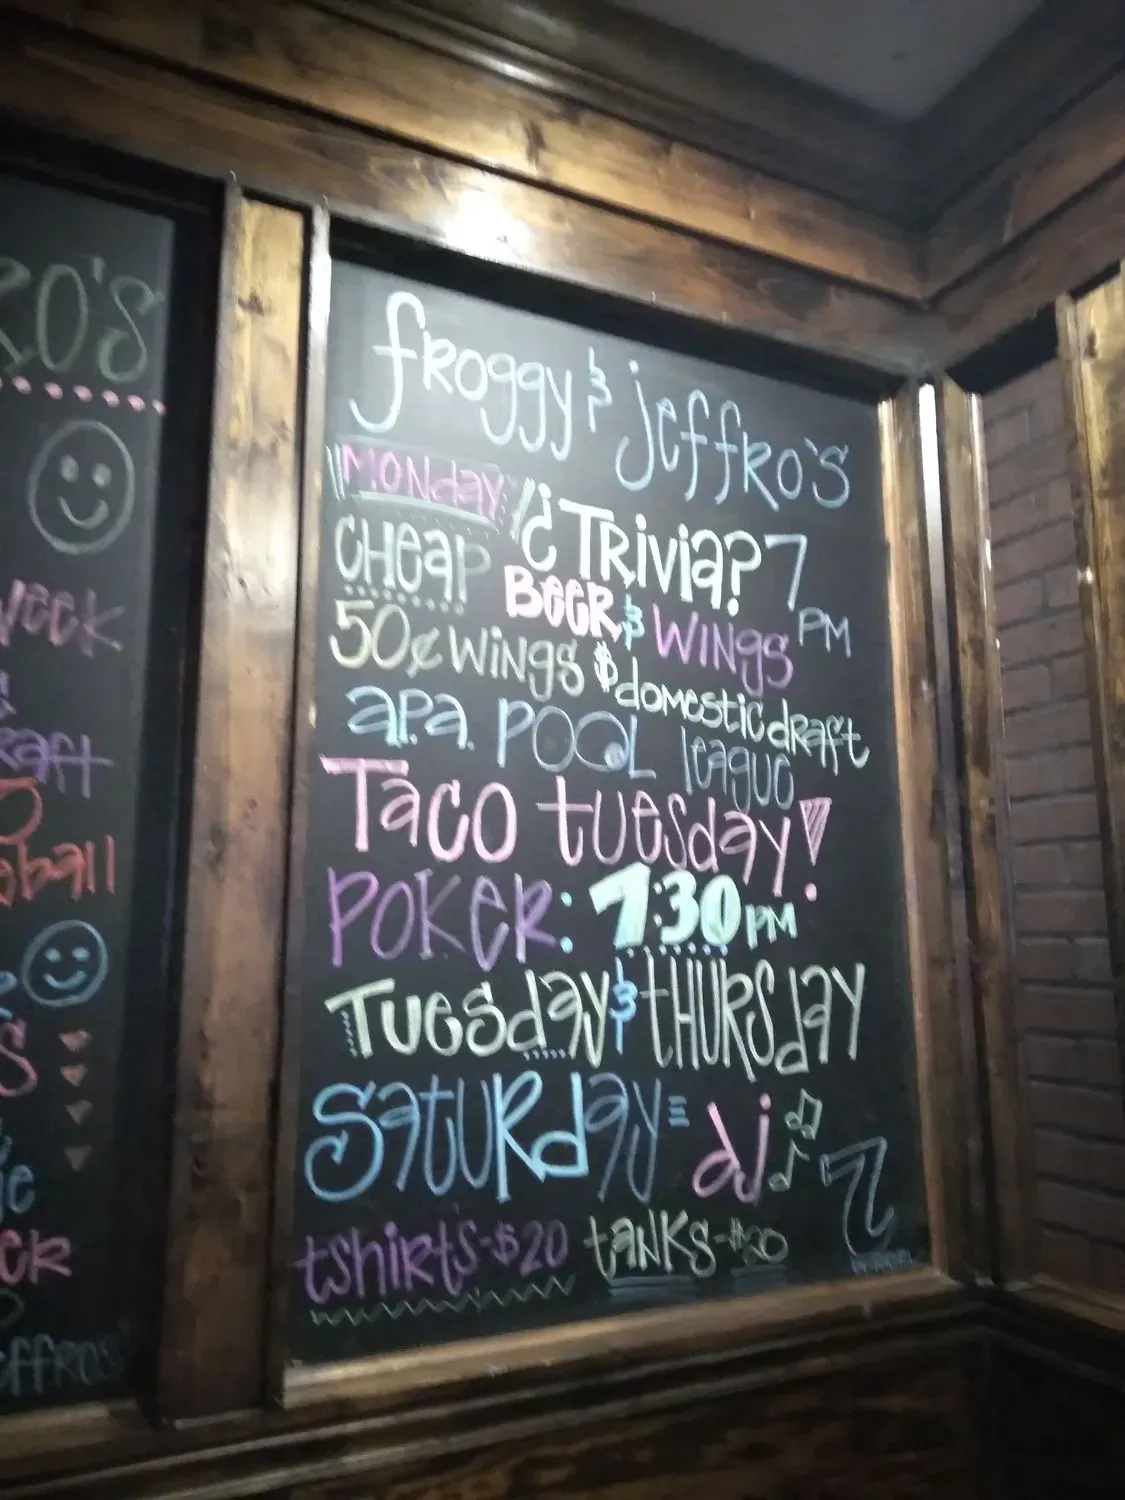 froggy & jeffRO'S
MONday ¿Trivia? 7 PM
CHeap BEER & WINgs
50¢ wings $ domestic draft
a.p.a. POOL league
Taco tuesday!
POKeR: 7:30 PM
Tuesday & tHURSday
Saturday = dj
tshirts-$20 tanks-$20
RO'S
week
Raft
ball
S
ck
effros